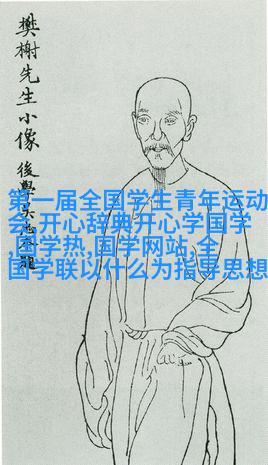 樊榭先生小像
後學
第一届全国学生青年运动
会,开心辞典开心学国学
,国学热,国学网站,全
国学联以什么为指导思想